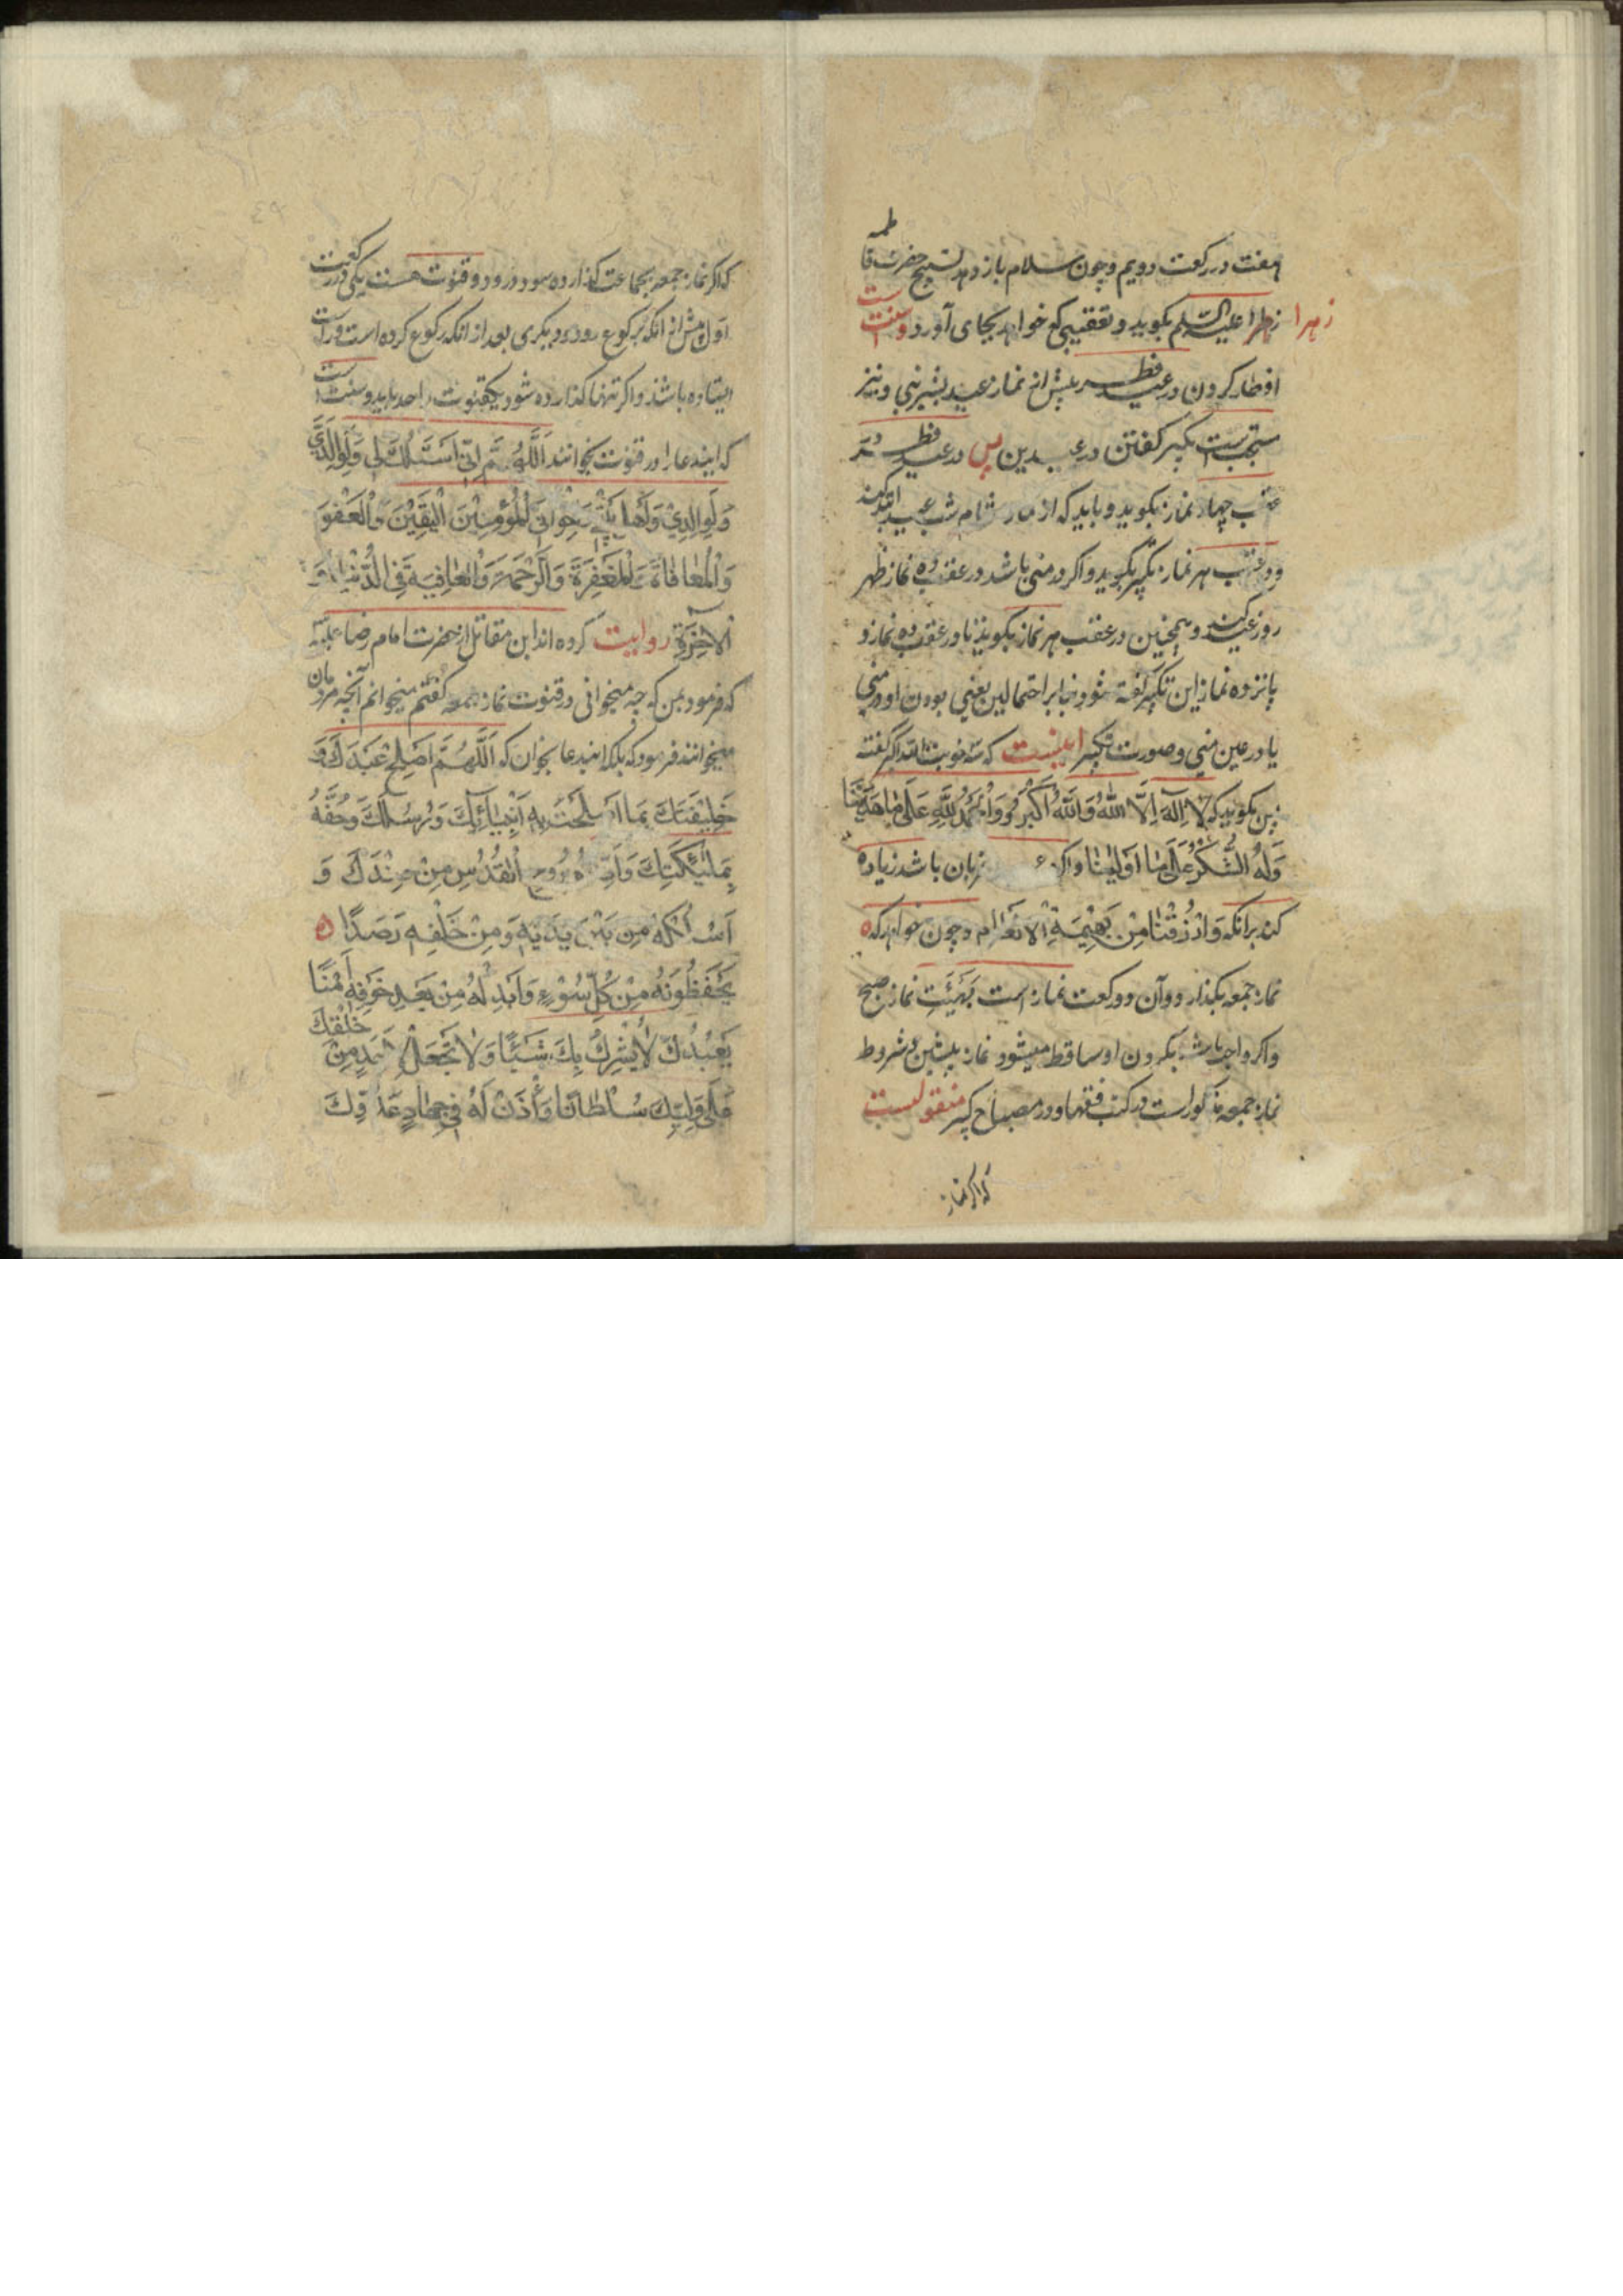 هفت در رکعت دویم و چون سلام باز دهد تسبیح حضرت فاطمه
زهرا علیه السلم بکوید و تعقیبی که خواهد بجای آورد و سنت است
زهرا
افطار کردن در عید فطر پیش از نماز عید بشیرینی و نیز
مستحبست تکبیر کفتن در عیدین پس در عید فطر در
عقب چهار نماز بکوید و باید که از نماز شام شب عید ابتدا کند
و در عقب هر نماز تکبیر بکوید و اکر در منی باشد در عقب ده نماز ظهر
روز عید کند و همچنین در عقب هر نماز بکوید تا در عقب ده نماز و
پانزده نماز این تکبیر کفته شود بنابر احتمالین یعنی بودن او در منی
یا در عین منی و صورت تکبیر اینست که سه نوبت الله اکبر کفته
پس بکوید که لا اِلهَ اِلَّا اللهُ وَاللهُ اَکْبَرُ وَالْحَمْدُ لِلّهِ عَلی مٰا هَدَیٰنَا
وَلَهُ الشُّکْرُ عَلی مٰا اَوْلَیٰنٰا و اکر زبان باشد زیاده
کند برانکه وَارْزُقْنٰا مِنْ بَهِیْمَةِ الْاَنْعٰامِ و چون خواهد که
نماز جمعه بکذارد و آن دو رکعت نماز است بَهَیْئَتِ نماز صبح
و اکر واجب باشد بکردن او ساقط میشود نماز پیشین و شروط
نماز جمعه مذکور است در کتب فقها و در مصباح کبیر منقولست
که اکر نماز
که اکر نماز جمعه بجماعت کذارده شود درو دو قنوت هست یکی در رکعت
اول پیش از آنکه برکوع رود و دیکری بعد از انکه رکوع کرده است و راست
ایستاده باشد و اکر تنها کذارده شود یکقنوت واحد باید و سنت است
که ایندعا را در قنوت بخوانند اَللّهُمَّ اِنّی اَسْئَلُکَ لی وَلِوٰالِدَیَّ
وَلِوٰالِدِیْ وَلِاَهْلِ بَیْتی وَاِخْوٰانِی الْمُؤْمِنِیْنَ الْیَقِیْنَ وَالْعَفْوَ
وَالْمُعٰافٰاةَ وَالْمَغْفِرَةَ وَالرَّحْمَةَ وَالْعٰافِیَةَ فِی الدُّنْیٰا وَ
الْاٰخِرَةِ روایت کرده اند ابن مقاتل از حضرت امام رضا علیه
که فرمود بمن که چه میخوانی در قنوت نماز جمعه کفتم میخوانم آنچه مردمان
میخوانند فرمود که بلکه ایندعا بخوان که اَللّهُمَّ اَصْلِحْ عَبْدَکَ وَ
خَلِیْفَتَکَ بِمٰا اَصْلَحْتَ بِه اَنْبِیٰائَکَ وَرُسُلَکَ وَحُفَّهُ
بِمَلٰئِکَتِکَ وَاَیِّدْهُ بِرُوحِ الْقُدُسِ مِنْ عِنْدِکَ وَ
اَسْلُکْهُ مِنْ بَیْنِ یَدَیْهِ وَمِنْ خَلْفِه رَصَدًا
یَحْفَظُوْنَهُ مِنْ کُلِّ سُوْءٍ وَاَبْدِلْهُ مِنْ بَعْدِ خَوْفِه اَمْنًا
یَعْبُدُکَ لٰا یُشْرِکُ بِکَ شَیْئًا وَلٰا تَجْعَلْ لِاَحَدٍ مِنْ خَلْقِکَ
عَلی وَلِیِّکَ سُلْطٰانًا وَأْذَنْ لَهُ فی جِهٰادِ عَدُوِّکَ